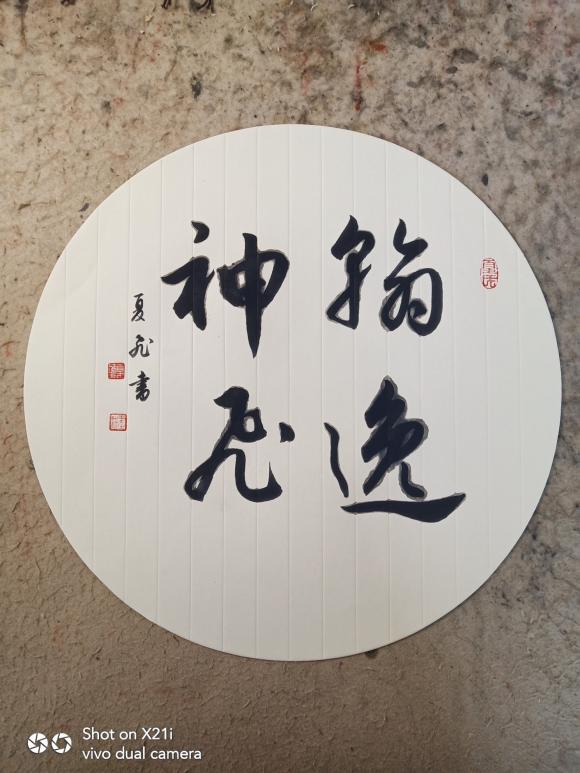 翰逸
神飞
夏飞书
Shot on X21i
vivo dual camera